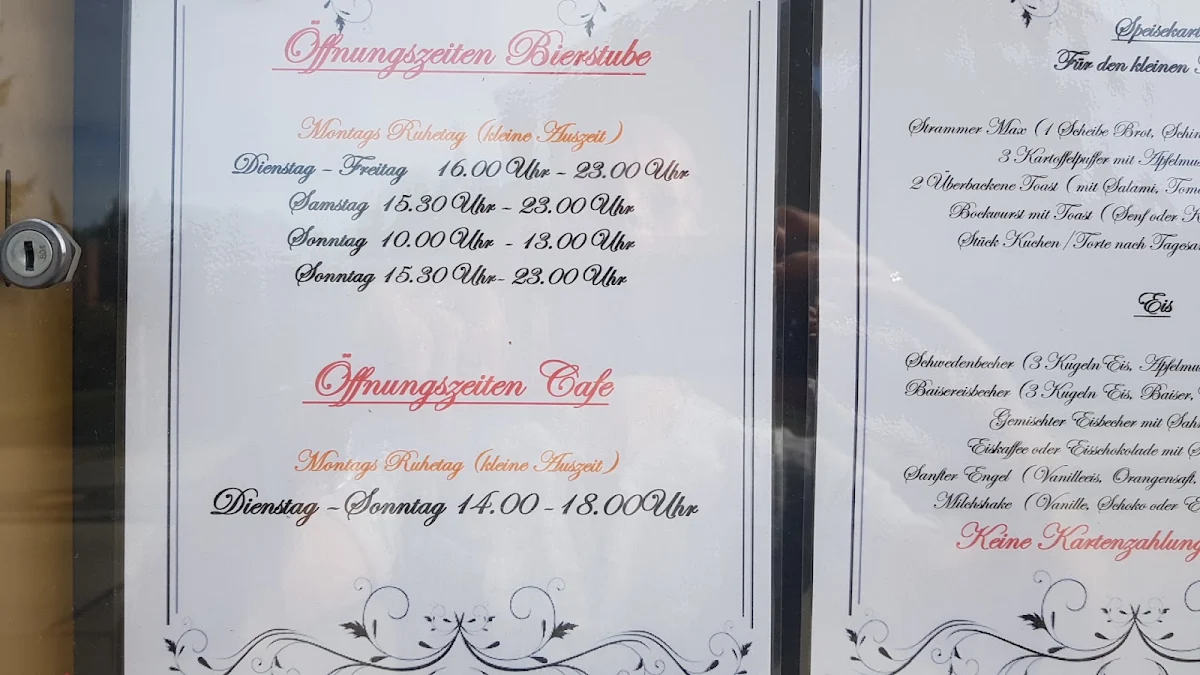 Öffnungszeiten Bierstube
Montags Ruhetag (kleine Auszeit)
Dienstag - Freitag 16.00 Uhr - 23.00 Uhr
Samstag 15.30 Uhr - 23.00 Uhr
Sonntag 10.00 Uhr - 13.00 Uhr
Sonntag 15.30 Uhr - 23.00 Uhr
Öffnungszeiten Cafe
Montags Ruhetag (kleine Auszeit)
Dienstag - Sonntag 14.00 - 18.00 Uhr
Für den kleinen
Strammer Max (1 Scheibe Brot,
3 Kartoffelpuffer mit
2 Überbackene Toast (mit Salami,
Bockwurst mit Toast (Senf oder
Stück Kuchen / Torte nach
Eis
Schwedenbecher (3 Kugeln Eis,
Baisereisbecher (3 Kugeln Eis, Baiser,
Gemischter Eisbecher mit
Eiskaffee oder Eisschokolade mit
Sanfter Engel (Vanilleeis, Orangensaft,
Milchshake (Vanille, Schoko oder
Keine Kartenzahlung